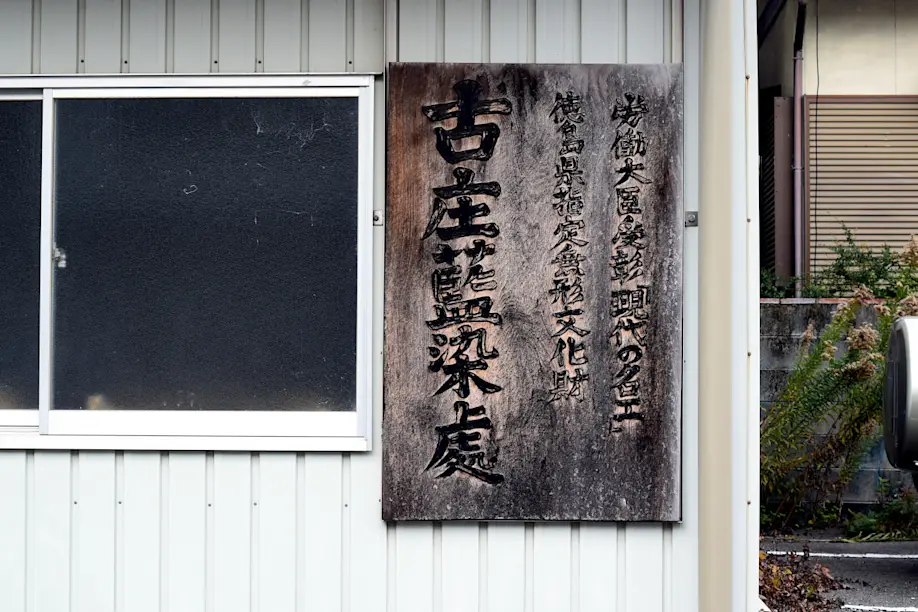 労働大臣受彰 現代の名工
徳島県指定無形文化財
古庄藍染處